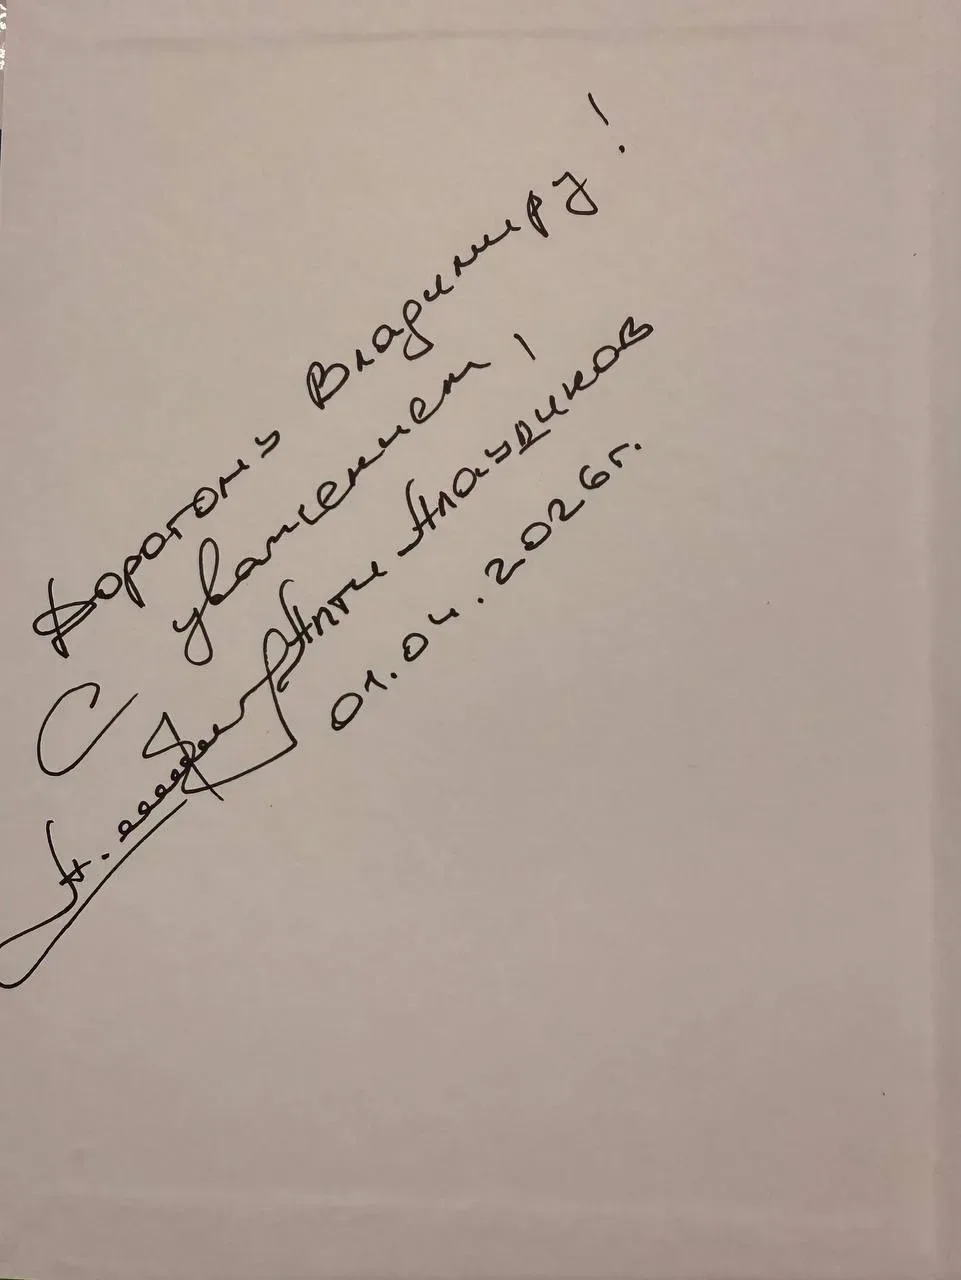 Дорогому Владимиру!
С уважением!
Апти Алаудинов
01.04.2026г.